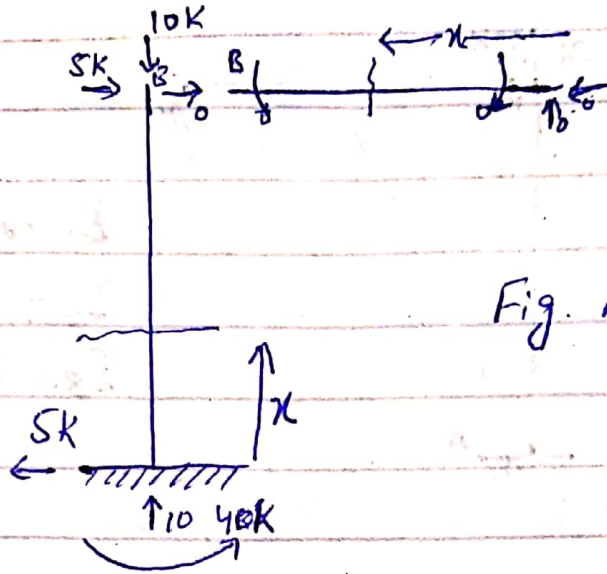 10K
5K B B x
0 0 0 0
Fig.
x
5K
10 40K